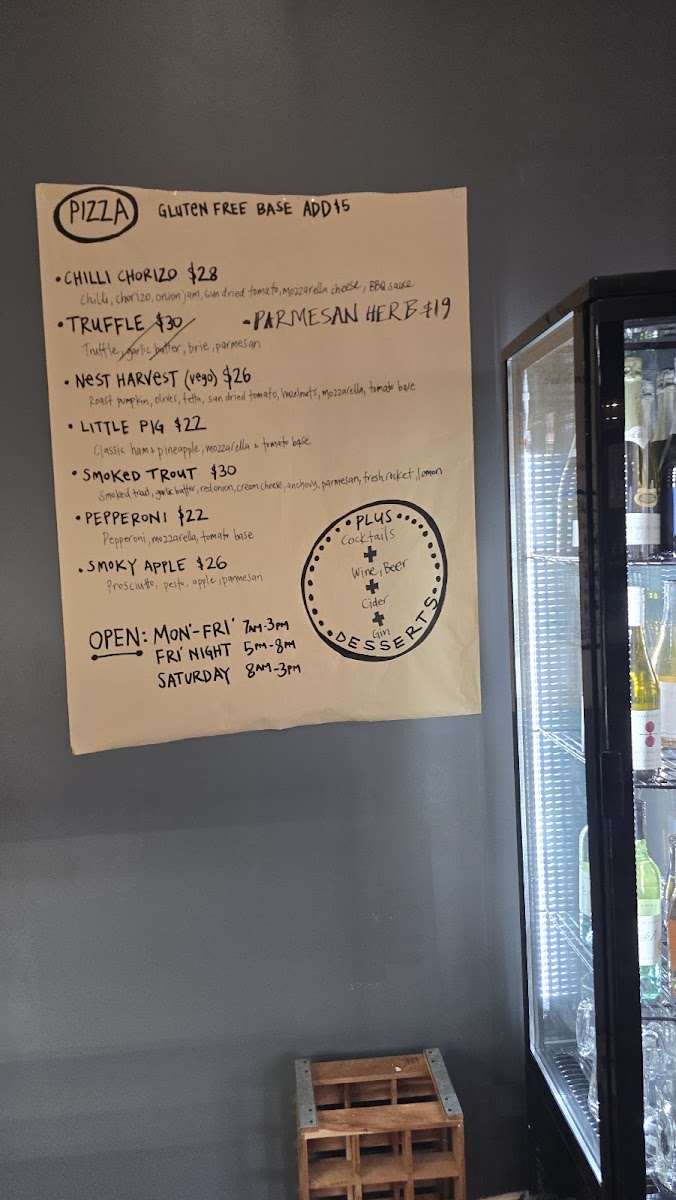 PIZZA GLUTEN FREE BASE ADD $5
• CHILLI CHORIZO $28
Chilli, chorizo, onion jam, sun dried tomato, mozzarella cheese, BBQ sauce
• TRUFFLE $30
• PARMESAN HERB $19
Truffle, garlic butter, brie, parmesan
• NEST HARVEST (vego) $26
Roast pumpkin, olives, fetta, sun dried tomato, hazelnuts, mozzarella, tomato base
• LITTLE PIG $22
Classic ham & pineapple, mozzarella & tomato base
• SMOKED TROUT $30
Smoked trout, garlic butter, red onion, cream cheese, anchovy, parmesan, fresh rocket, lemon
• PEPPERONI $22
Pepperoni, mozzarella, tomato base
• SMOKY APPLE $26
Prosciutto, pesto, apple, parmesan
PLUS
Cocktails
+
Wine, Beer
+
Cider
+
Gin
DESSERTS
OPEN: MON'-FRI' 7AM-3PM
FRI' NIGHT 5PM-8PM
SATURDAY 8AM-3PM